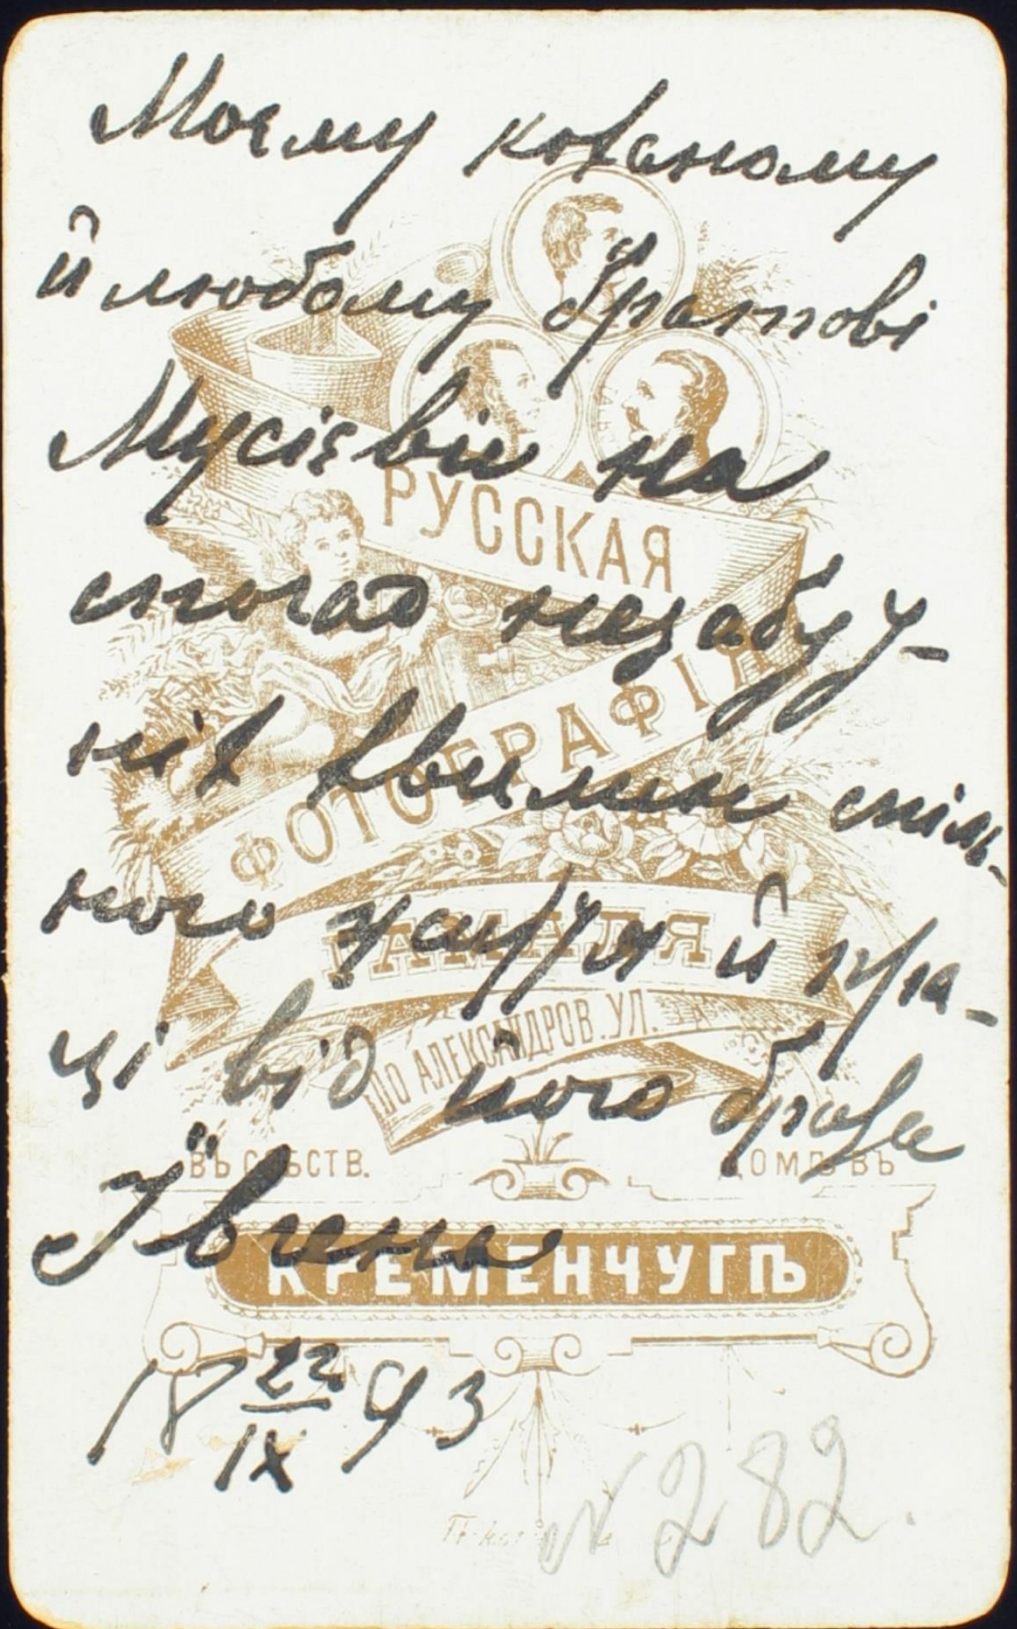 Моєму коханому
й любому братові
Мусієви на
спогад незабу-
ніх хвилин спіль-
ного життя й пра-
ці від його брата
Ївгена
18 22/IX 93
РУССКАЯ
ФОТОГРАФІЯ
ГАМАЛЯ
ПО АЛЕКСАНДРОВ. УЛ.
ВЪ СОБСТВ. ДОМѢ ВЪ
КРЕМЕНЧУГѢ
N 282.